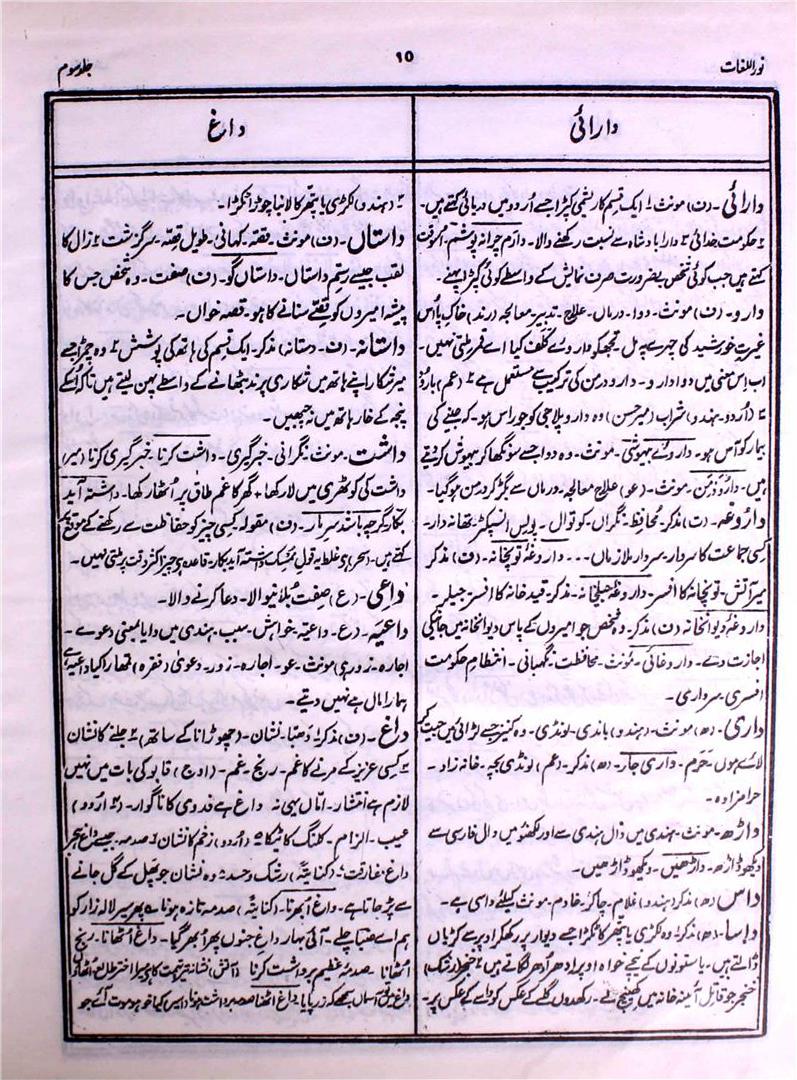 نور اللغات
۱۵
جلد سوم
دارائی
دارائی۔ (ف) مونث ۱ ایک قسم کا ریشمی کپڑا جسے اُردو میں دریائی کہتے ہیں۔
۲ حکومت خدائی ۳ دارا بادشاہ سے نسبت رکھنے والا۔ دارم چرا نہ پوشم۔ اسوقت
کہتے ہیں جب کوئی شخص بے ضرورت صرف نمائش کے واسطے کوئی کپڑا پہنے۔
دارو۔ (ف) مونث۔ دوا۔ درماں۔ علاج۔ تدبیر۔ معالجہ (رند) خاکِ پا اُس
غیرتِ خورشید کی چہرے پہ مل۔ تجھکو داروے کلف گیا اے قمر ملتی نہیں۔
اب اِس معنی میں دوا دارو۔ دارو درمن کی ترکیب سے مستعمل ہے ۲ (عم) بارود
۳ (اُردو۔ ہندو) شراب (میر حسن) وہ دارو پلا جی کو جو راس ہو۔ کہ جینے کی
بیمار کو آس ہو۔ داروئے بیہوشی۔ مونث۔ وہ دوا جسے سونگھا کر بیہوش کردیتے
ہیں۔ دارو درمن۔ مونث۔ (عو) علاج معالجہ۔ درماں سے بگڑ کر درمن ہو گیا۔
داروغہ۔ (ت) مذکر۔ محافظ۔ نگراں۔ کوتوال۔ پولیس انسپکٹر۔ تھانہ دار۔
کسی جماعت کا سردار۔ سردار ملازماں۔۔۔ داروغۂ توپخانہ۔ (ف) مذکر
میر آتش۔ توپخانہ کا افسر۔ داروغۂ جیلخانہ۔ مذکر۔ قید خانہ کا افسر۔ جیلر۔
داروغۂ دیوانخانہ (ف) مذکر۔ وہ شخص جو امیروں کے پاس دیوانخانہ میں جانیکی
اجازت دے۔ داروغائی۔ مونث۔ محافظت۔ نگہبانی۔ انتظام۔ حکومت
افسری۔ سرداری۔
داری۔ (ھ) مونث۔ (ہندو) باندی۔ لونڈی۔ وہ کنیز جسے لڑائی میں جیت کر
لائے ہوں۔ حَرَم۔ داری جار۔ (ھ) مذکر۔ (عم) لونڈی بچہ۔ خانہ زاد۔
حرامزادہ۔
داڑھ۔ مونث۔ ہندی میں ڈال ہندی سے اور لکھنؤ میں دال فارسی سے
دیکھو ڈاڑھ۔ داڑھیں۔ دیکھو ڈاڑھیں۔
داس (ھ) مذکر (ہندو) غلام۔ چاکر۔ خادم۔ مونث کیلئے داسی ہے۔
داسا۔ (ھ) مذکر ۱ وہ لکڑی یا پتھر کا ٹکڑا جسے دیوار پر رکھکر اوپر سے کڑیاں
ڈالتے ہیں۔ یا ستونوں کے نیچے خواہ اوپر ادھر اُدھر لگاتے ہیں ۲ خنجر (رشک)
خنجر جو قاتل آئینہ خانہ میں کھینچ لے۔ رکھدوں گلے کے عکس کو داسے کے عکس پر۔
داغ
۳ (ہندو) لکڑی یا پتھر کا لانبا چوڑا ٹکڑا۔
داستاں۔ (ف) مونث۔ قصّہ۔ کہانی۔ طویل قصّہ۔ سرگزشت ۲ زال کا
لقب جیسے رستم داستاں۔ داستاں گو۔ (ف) صفت۔ وہ شخص جس کا
پیشہ امیروں کو قصّے سنانے کا ہو۔ قصہ خواں۔
داستانہ۔ (ف۔ دستانہ) مذکر۔ ایک قسم کی ہاتھ کی پوشش ۲ وہ چمڑا جسے
میر شکار اپنے ہاتھ میں شکاری پرند بٹھانے کے واسطے پہن لیتے ہیں تاکہ اُسکے
پنجے کے خار ہاتھ میں نہ چبھیں۔
داشت۔ مونث۔ نگرانی۔ خبر گیری۔ داشت کرنا۔ خبر گیری کرنا (میر)
داشت کی کوٹھری میں لا رکھا + گھر کا غم طاق پر اُٹھا رکھا۔ داشتہ آید
بکار گرچہ باشد سر بار۔ (ف) مقولہ۔ کسی چیز کو حفاظت سے رکھنے کے موقع پر
کہتے ہیں۔ (سحر) غلط یہ قول ہیشک داشتہ آید بکار۔ قاعدہ ہے چیز اکثر وقت پر ملتی نہیں۔
داعی۔ (ع) صفت بُلانیوالا۔ دعا کرنے والا۔
داعیہ۔ (ع۔ داعیّہ۔ خواہش۔ سبب۔ ہندی میں دایا بمعنی دعوے۔
اجارہ۔ زور) مونث۔ عو۔ اجارہ۔ زور۔ دعویٰ (فقرہ) تمھارا کیا داعیہ ہے
ہمارا مال ہے نہیں دیتے۔
داغ۔ (ف) مذکر ۱ دَھبّا۔ نشان۔ (چھوڑانا کے ساتھ) ۲ جلنے کا نشان
۳ کسی عزیز کے مرنے کا غم۔ رنج۔ غم۔ (اوج) قابو کی بات میں نہیں
لازم ہے انتشار۔ اماں یہی نہ داغ ہے فدوی کا ناگوار۔ (۴ اردو)
عیب۔ الزام۔ کلنگ کا ٹیکا ۵ (اُردو) زخم کا نشان ۶ صدمہ۔ جیسے داغ ہجر
داغ مفارقت ۷ (کنایۃً) رشک و حسد ۸ وہ نشان جو پھل کے گل جانے
سے پڑ جاتا ہے۔ داغ اُبھرنا۔ (کنایۃً) صدمہ تازہ ہونا ؎ پھر سیر لالہ زار کو
ہم اے صبا چلے۔ آئی بہار داغ جنوں پھر اُبھر گیا۔ داغ اُٹھانا۔ رنج
اُٹھانا۔ صدمۂ عظیم برداشت کرنا